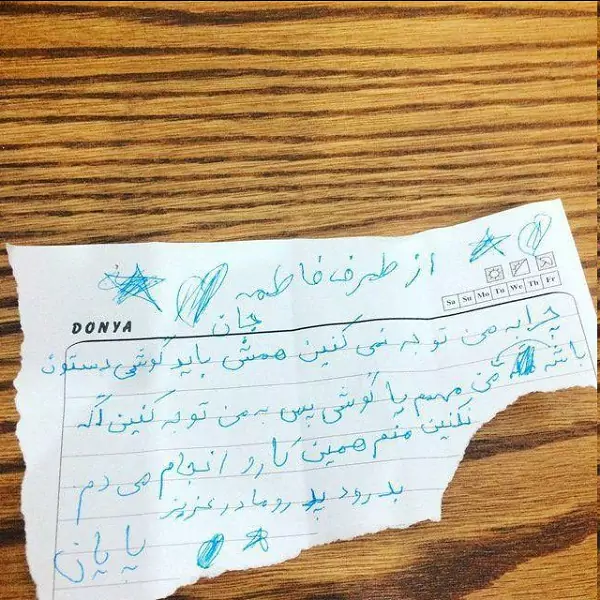 از طرف فاطمه
جان
DONYA
Sa Su Mo Tu We Th Fr
چرا به من توجه نمی کنین همش باید گوشی دستتون
باشه من مهمم یا گوشی پس به من توجه کنین اگه
نکنین منم همین کارو انجام می دم
بدرود پدر و مادر عزیز
پایان